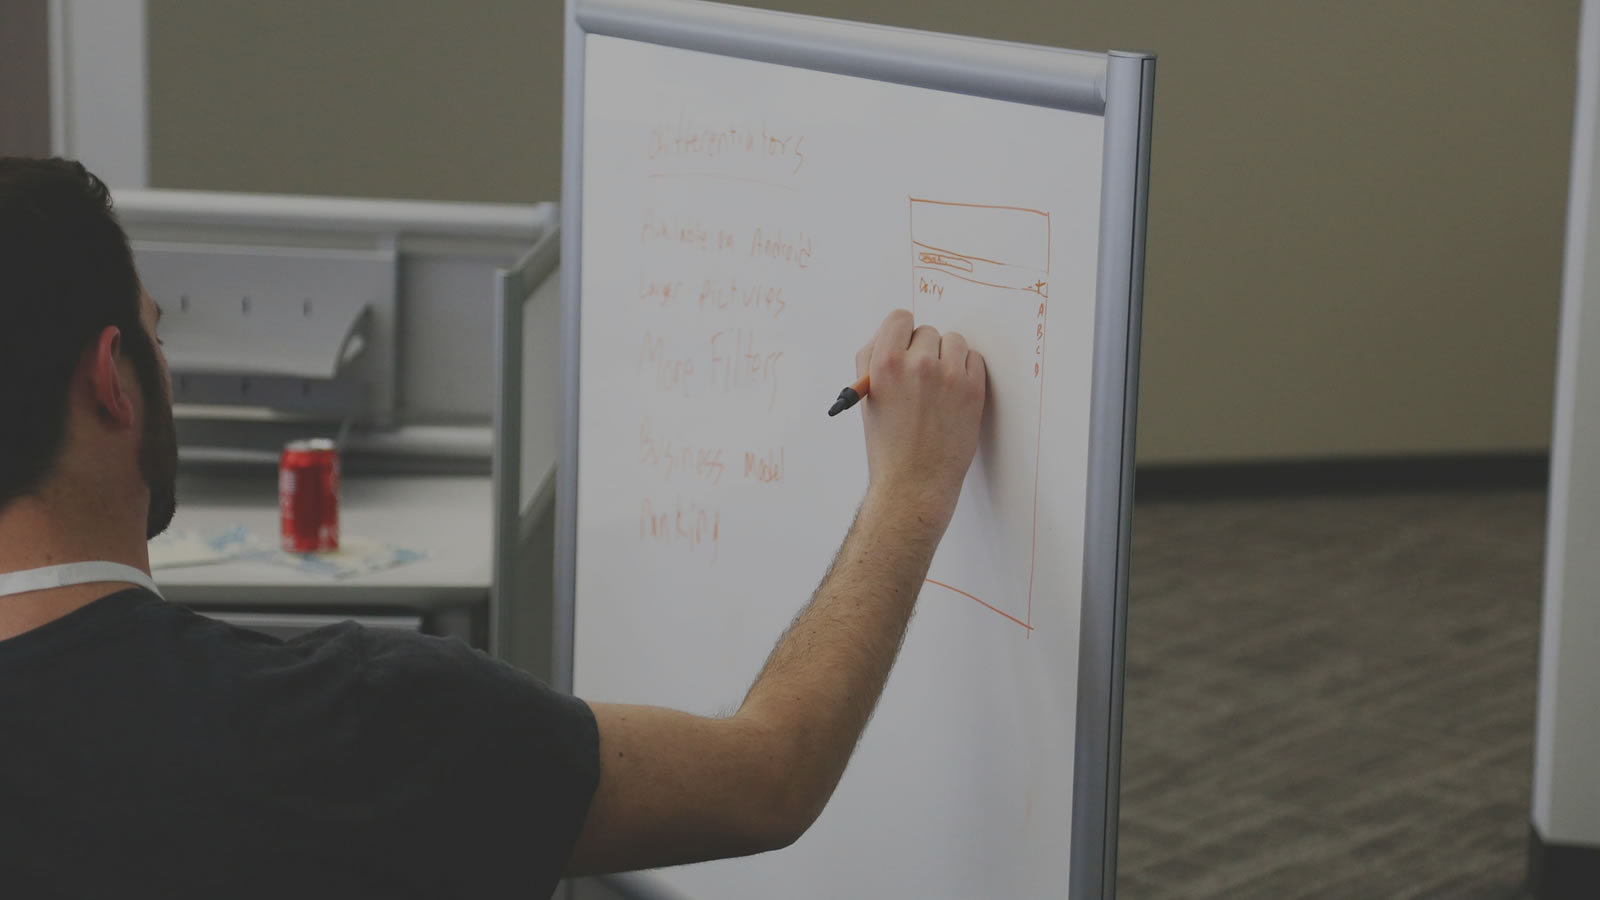 Differentiators
Available on Android
Larger pictures
More Filters
Business Model
Ranking
Dairy
A
B
C
D